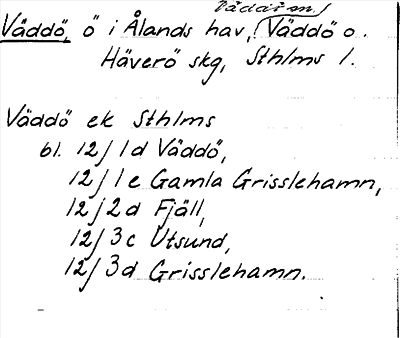 Väddö, ö i Ålands hav, Väddö o.
Häverö skg, Sthlms l.
Väddö ek Sthlms
bl. 12/1d Väddö,
12/1e Gamla Grisslehamn,
12/2d Fjäll,
12/3c Utsund,
12/3d Grisslehamn.